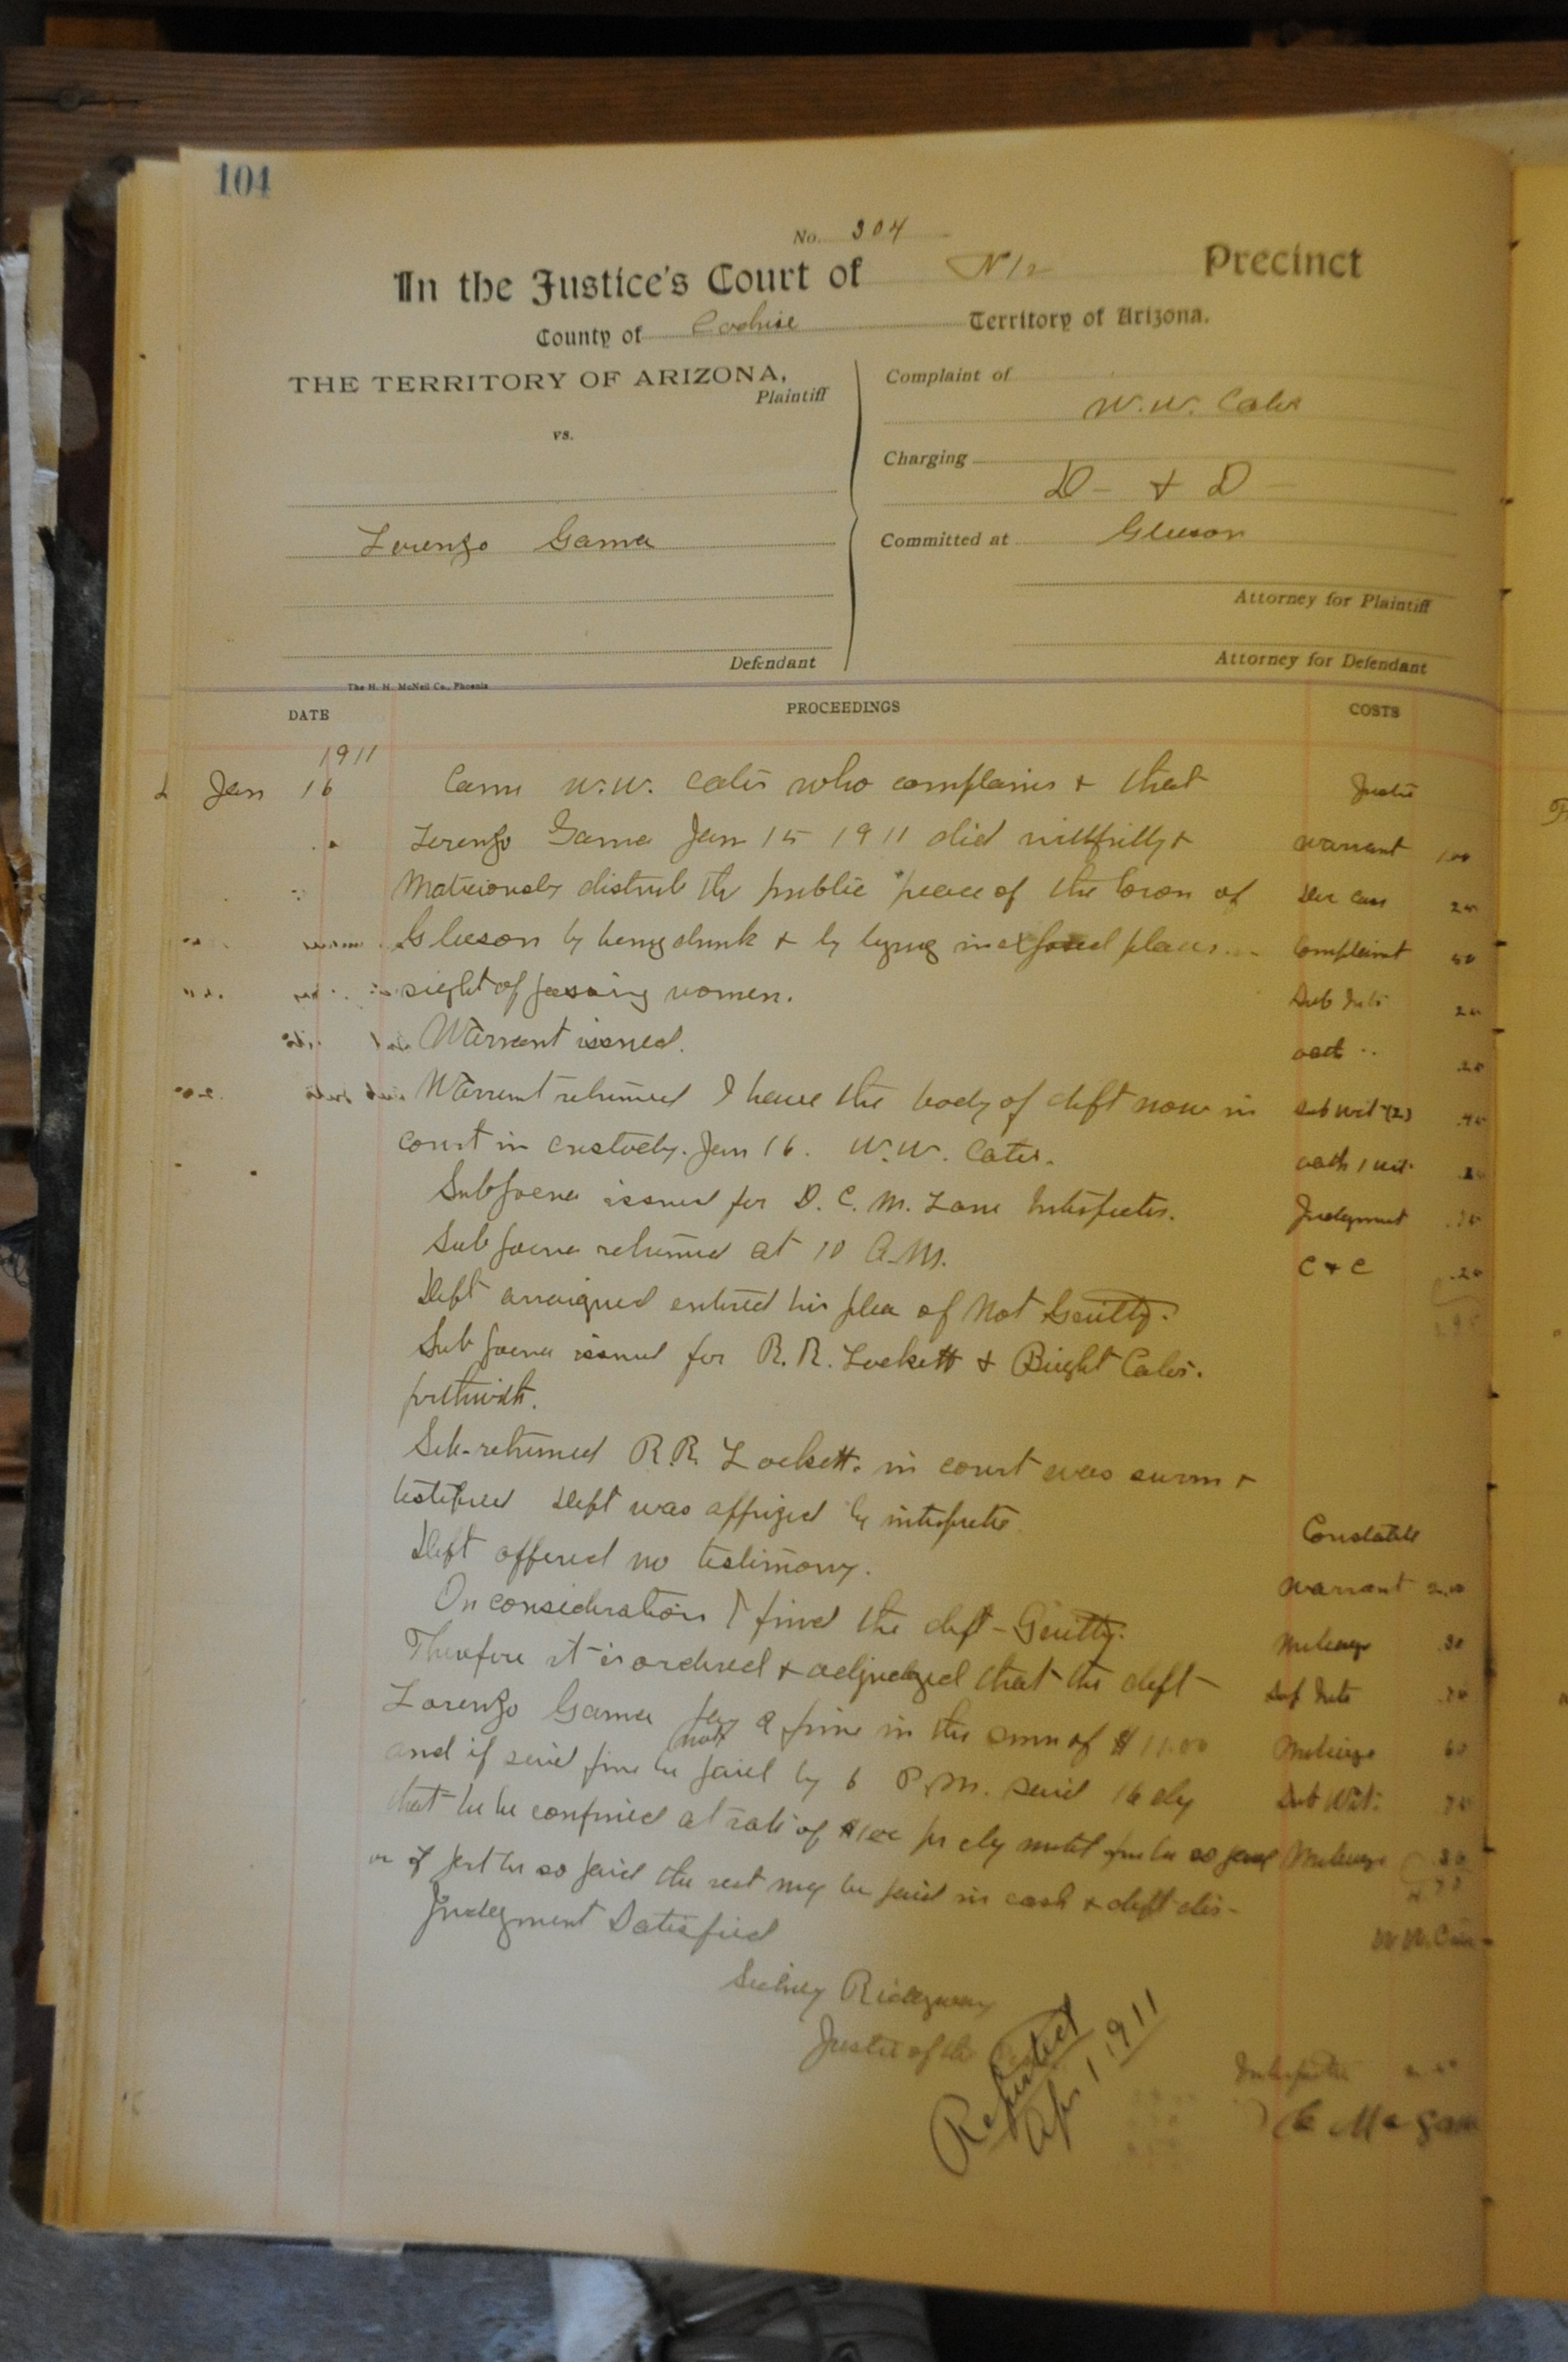 104
No. 304
In the Justice's Court of No 12 Precinct
County of Cochise Territory of Arizona.
THE TERRITORY OF ARIZONA,
Plaintiff
vs.
Lorenzo Gama
Defendant
Complaint of
W. W. Cates
Charging
D - & D -
Committed at Gleeson
Attorney for Plaintiff
Attorney for Defendant
The H. H. McNeil Co., Phoenix
DATE PROCEEDINGS COSTS
1911
Jan 16 Came W. W. Cates who complains & that Justice
Lorenzo Gama Jan 15 1911 did willfully & warrant 1.00
Maliciously disturb the public peace of the town of 25
Gleeson by being drunk & by lying in exposed places Complaint 50
sight of passing women. Sub Inter 25
Warrant issued. oath .. .25
Warrant returned I have the body of deft now in sub wit (2)
court in custody. Jan 16. W. W. Cates. oath 1 wit.
Subpoena issued for D. C. M. Lane Interpreter. Judgment
Subpoena returned at 10 A.M. C & C .20
Deft arraigned entered his plea of Not Guilty.
Subpoena issued for R. R. Lockett & Bright Cates.
forthwith.
Sub. returned R. R. Lockett. in court was sworn &
testified Deft was apprized by interpreter
Constable
Deft offered no testimony.
Warrant
On consideration I find the deft - Guilty.
Mileage .30
Therefore it is ordered & adjudged that the deft
Lorenzo Gama pay a fine in the sum of $11.00 Mileage
and if said fine be not paid by 6 P.M. said 16 dy Sub Wit.
that he be confined at rate of $1.00 pr dy until fine be so paid Mileage .30
or if part be so paid the rest may be paid in cash & deft dis-
Judgment Satisfied
W W. Cates
Sidney Ridgway
Justice of the
Reported
Apr 1 1911
Interpreter